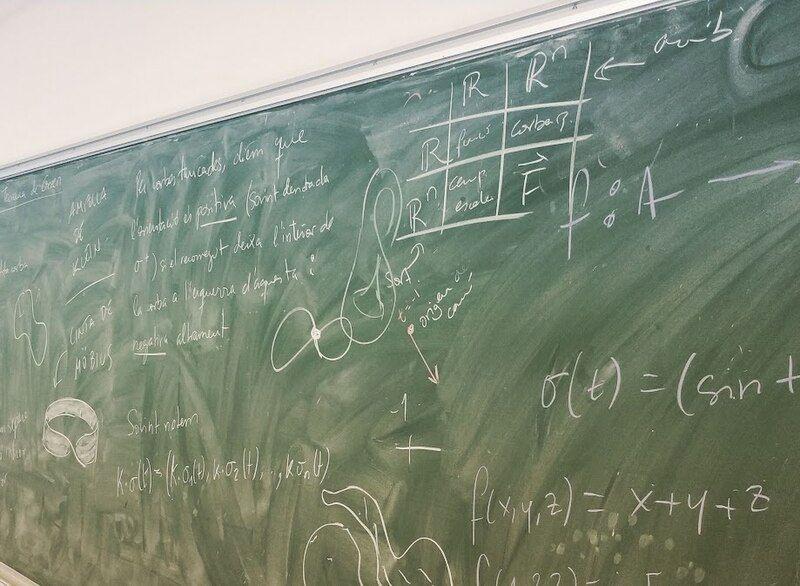 Teorema de Green
AMPOLLA
DE
KLEIN
CINTA DE
MÖBIUS
Per corbes tancades, diem que
l'orientació és positiva (sovint denotada
σ⁺) si el recorregut deixa l'interior de
la corba a l'esquerra d'aquesta i
negativa altrament
Sovint notem
k·σ(t) = (k·σ₁(t), k·σ₂(t), ..., kσₙ(t))
ℝ ℝⁿ ← arrib
ℝ corba p.
ℝⁿ camp escalar F⃗
sort ↗
origen de
f : A →
σ(t) = (sin t
-1
+
f(x,y,z) = x+y+z